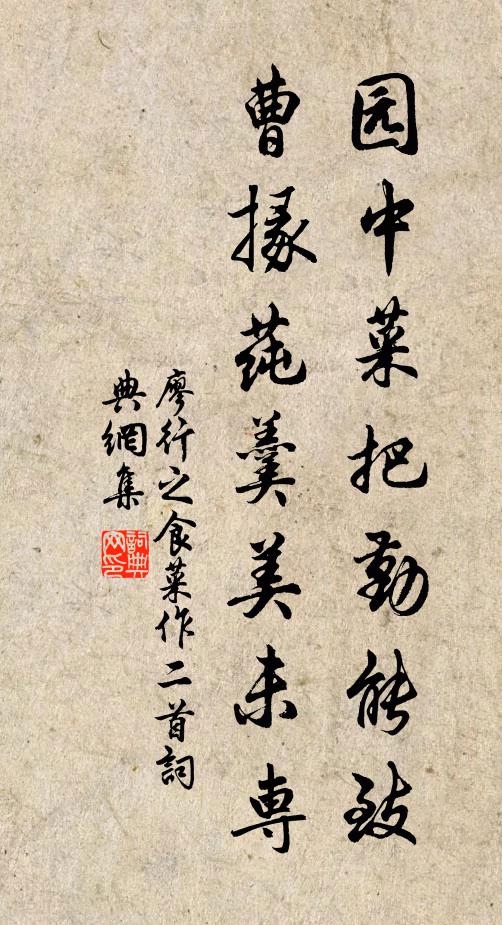 园中菜把勤能致
曹掾莼羹美未専
廖行之食菜作二首詞
典網集
詞典
网印